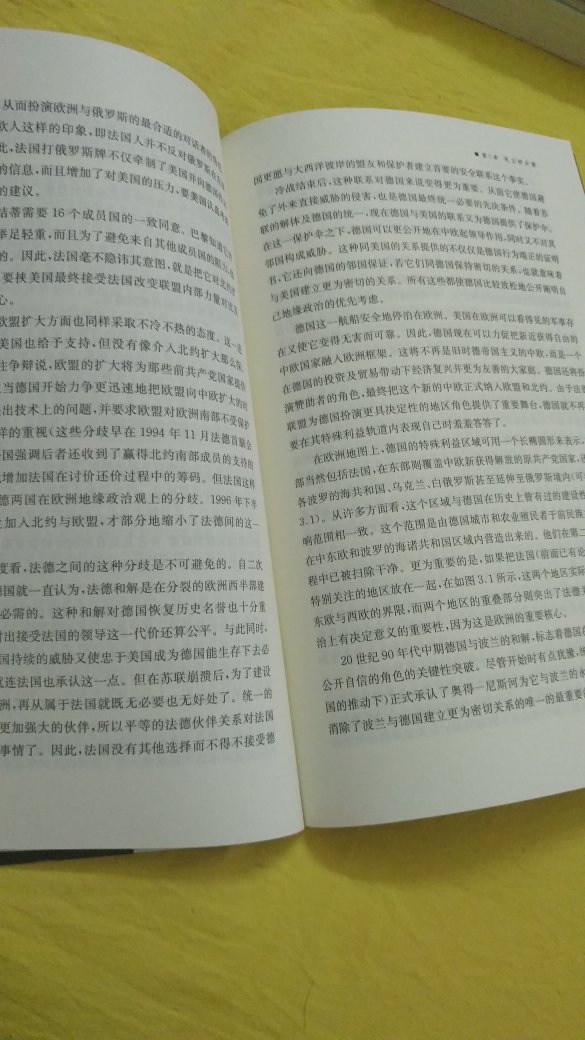 从而扮演欧洲与俄罗斯的最合适的对话者的
欧人这样的印象，即法国人并不反对俄罗斯在
此，法国打俄罗斯牌不仅牵制了美国并向德国
的信息，而且增加了对美国的压力，要美国认真
的建议。
结蒂需要16个成员国的一致同意。巴黎知道它的
举足轻重，而且为了避免来自其他成员国的阻力，
的。因此，法国毫不隐讳其意图，就是把它对此的
要挟美国最终接受法国改变联盟内部力量对比
心。
欧盟扩大方面也同样采取不冷不热的态度。这一
美国也给予支持，但没有像介入北约扩大那么深。
往争辩说，欧盟的扩大将为那些前共产党国家提供
当德国开始力争更迅速地把欧盟向中欧扩大的时
出技术上的问题，并要求欧盟对欧洲南部不受保护
样的重视（这些分歧早在1994年11月法德首脑会
国强调后者还收到了赢得北约南部成员的支持的
增加法国在讨价还价过程中的筹码。但法国这样
德两国在欧洲地缘政治观上的分歧。1996年下半
兰加入北约与欧盟，才部分地缩小了法德间的这一
度看，法德之间的这种分歧是不可避免的。自二次
国就一直认为，法德和解是在分裂的欧洲西半部建
必需的。这种和解对德国恢复历史名誉也十分重
付出接受法国的领导这一代价还算公平。与此同时，
国持续的威胁又使忠于美国成为德国能生存下去必
就连法国也承认这一点。但在苏联崩溃后，为了建设
洲，再从属于法国就既无必要也无好处了。统一的
更加强大的伙伴，所以平等的法德伙伴关系对法国
事情了。因此，法国没有其他选择而不得不接受德
国更愿与大西洋彼岸的盟友和保护者建立首要的安全联系这个事实。
冷战结束后，这种联系对德国来说变得更为重要。从前它使德国避
免了外来直接威胁的侵害，也是德国最终统一必要的先决条件。随着苏
联的解体及德国的统一，现在德国与美国的联系又为德国提供了保护伞。
在这一保护伞之下，德国可以更公开地在中欧起领导作用，同时又不对其
邻国构成威胁。这种同美国的关系提供的不仅仅是德国行为端正的证明
书，它还向德国的邻国保证，若它们同德国保持密切的关系，也就意味着
与美国建立更为密切的关系。所有这些都使德国比较放松地公开阐明自
己地缘政治的优先考虑。
德国这一航船安全地停泊在欧洲。美国在欧洲可以看得见的军事存
在又使它变得无害而可靠。因此，德国现在可以力促把新近获得自由的
中欧国家融入欧洲框架。这将不再是旧时德帝国主义的中欧，而是一个
在德国的投资及贸易带动下经济复兴并更为友善的大家庭。德国还将扮
演赞助者的角色，最终把这个新的中欧正式纳入欧盟和北约。由于法德
联盟为德国扮演更具决定性的地区角色提供了重要舞台，德国就不再
要在其特殊利益轨道内表现自己时羞羞答答了。
在欧洲地图上，德国的特殊利益区域可用一个长椭圆形来表示，
部当然包括法国，在东部则覆盖中欧新获得解放的原共产党国家，
各波罗的海共和国、乌克兰、白俄罗斯甚至延伸至俄罗斯境内（
3.1）。从许多方面看，这个区域与德国在历史上曾有过的建设性
响范围相一致。这个范围是由德国城市和农业殖民者于前民族
在中东欧和波罗的海诸共和国区域内营造出来的。他们在第二
程中已被扫除干净。更为重要的是，如果把法国（前面已有论
特别关注的地区放在一起，在如图3.1所示，这两个地区实际
东欧与西欧的界限，而两个地区的重叠部分则突出了法德
治上有决定意义的重要性，因为这是欧洲的重要核心。
20世纪90年代中期德国与波兰的和解，标志着德国在
公开自信的角色的关键性突破。尽管开始时有点犹豫，
国的推动下）正式承认了奥得—尼斯河为它与波兰的永
消除了波兰与德国建立更为密切关系的唯一的最重要的